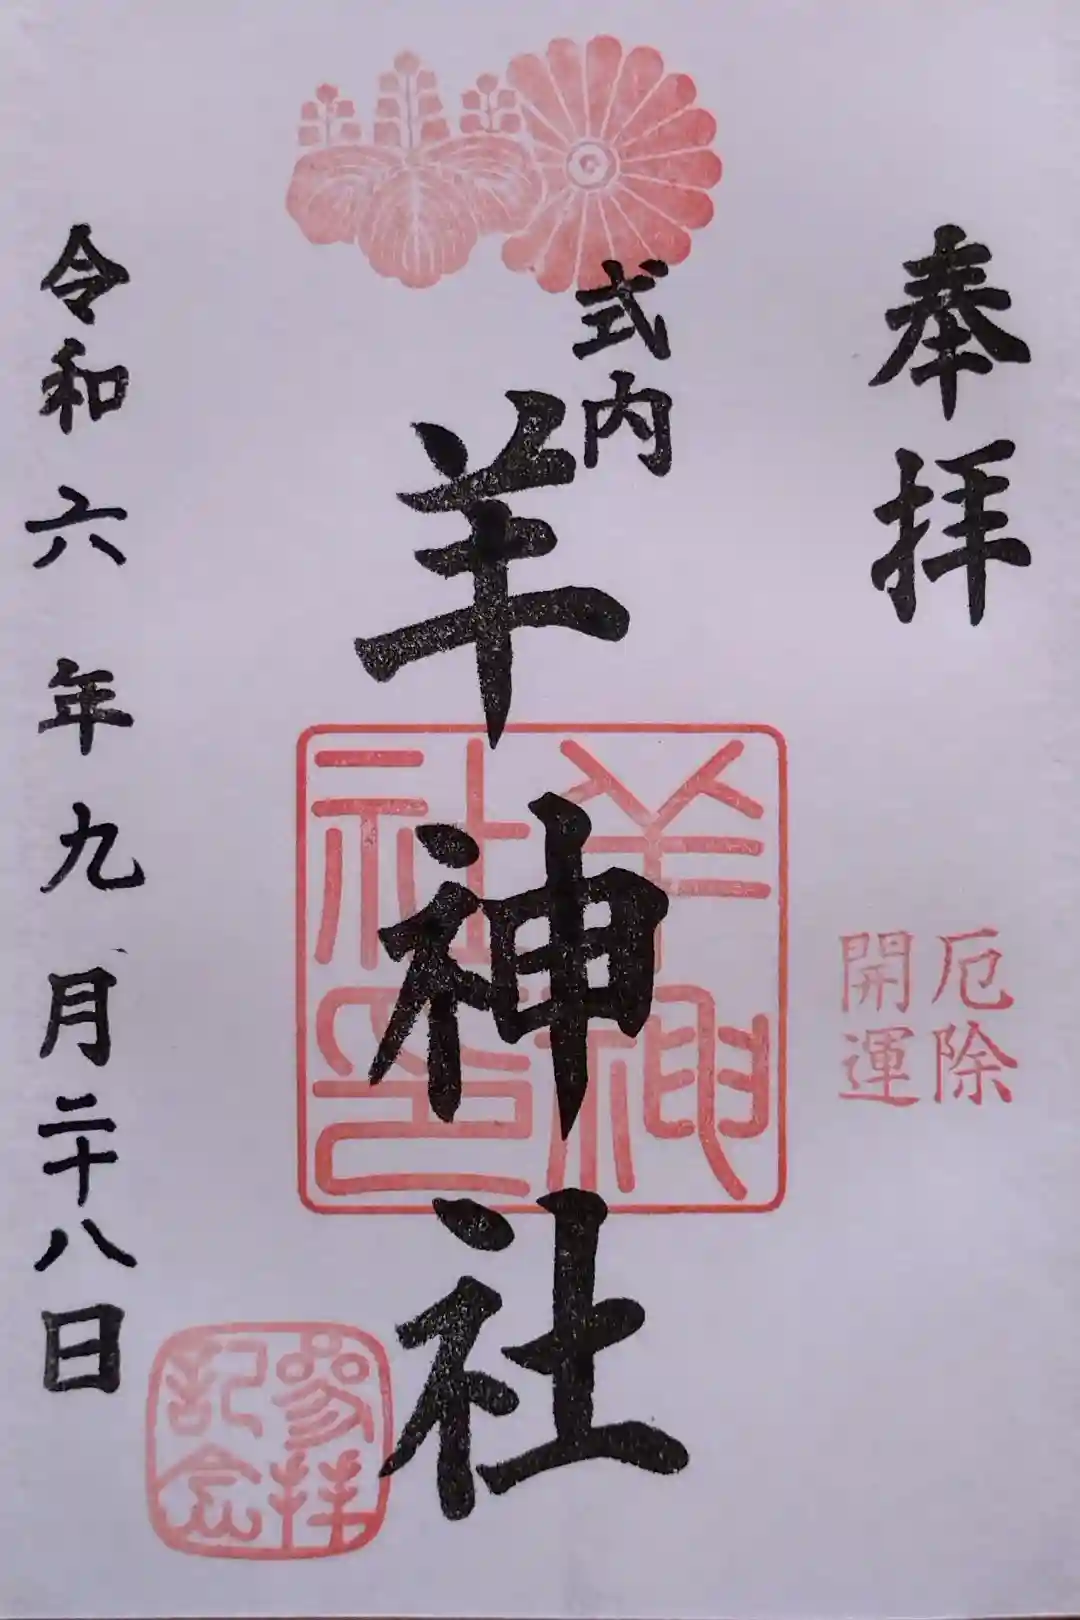 奉拝
厄除
開運
式内
羊神社
羊神
社印
参拝
記念
令和六年九月二十八日